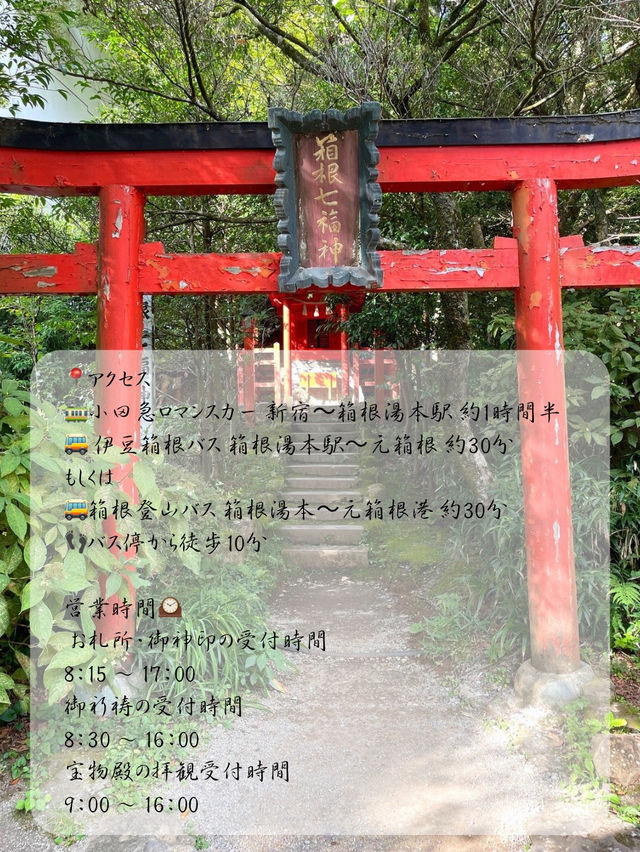 箱根七福神
📍アクセス
🚃小田急ロマンスカー 新宿〜箱根湯本駅 約1時間半
🚌 伊豆箱根バス 箱根湯本駅〜元箱根 約30分
もしくは
🚌箱根登山バス 箱根湯本〜元箱根港 約30分
👣バス停から徒歩10分
営業時間🕰️
お札所・御神印の受付時間
8:15 〜 17:00
御祈祷の受付時間
8:30 〜 16:00
宝物殿の拝観受付時間
9:00 〜 16:00